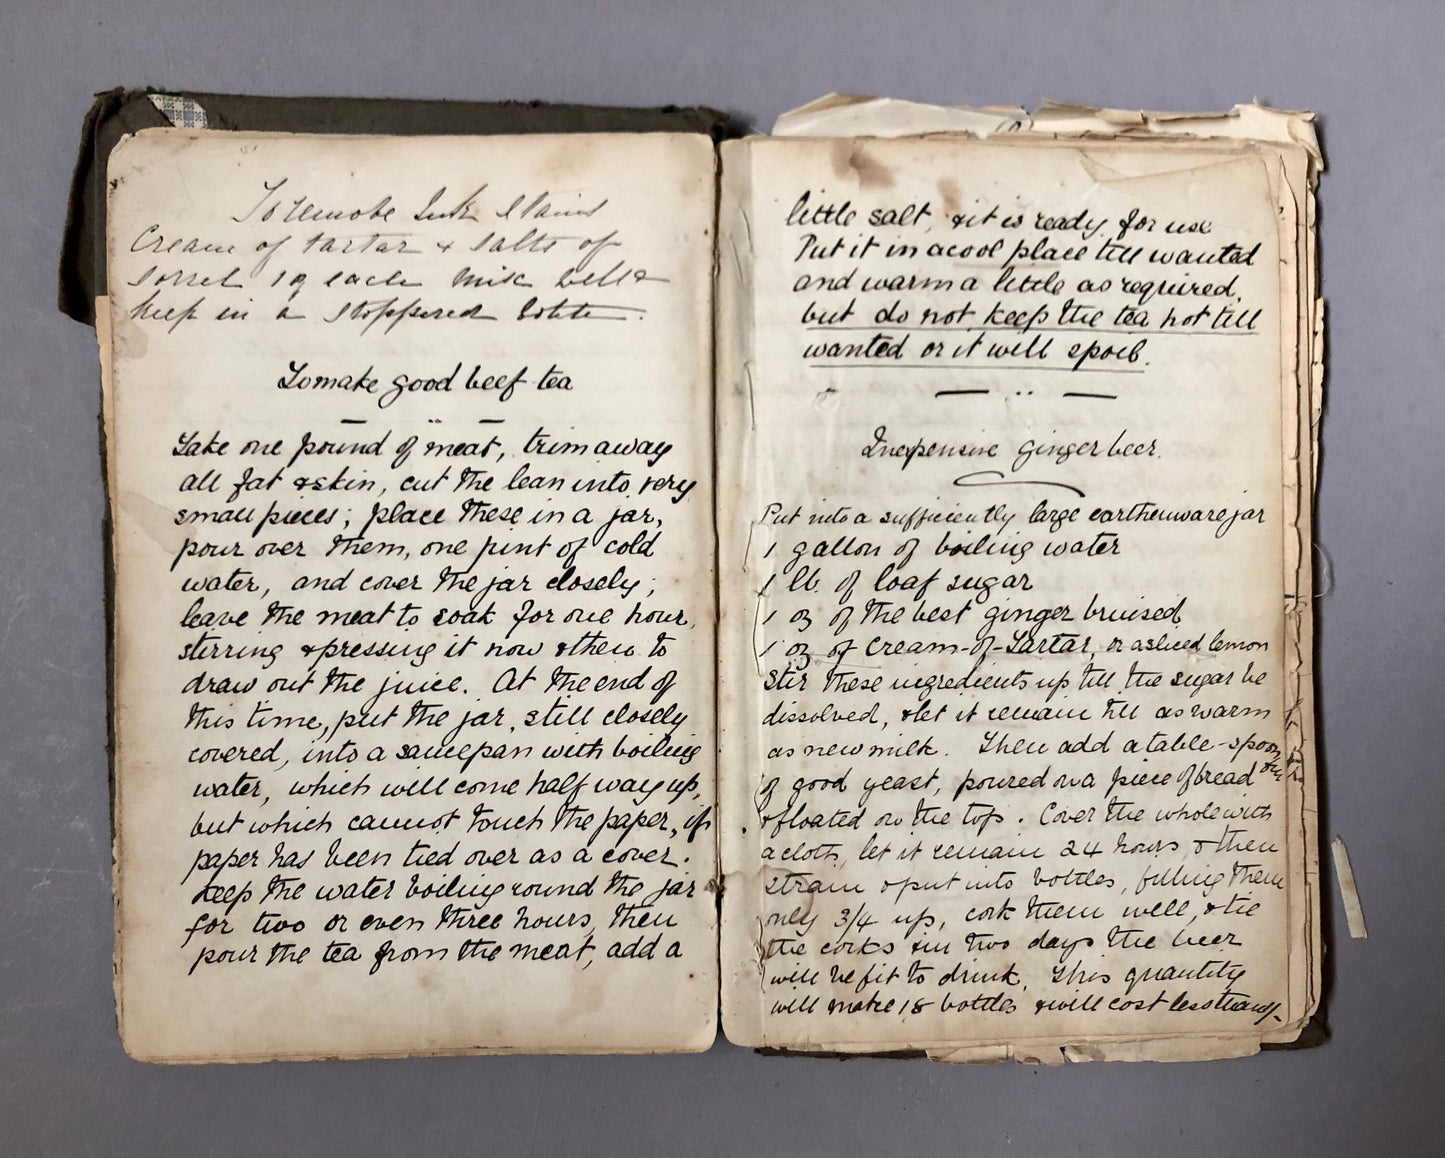 To remove Ink Stains
Cream of tartar & Salts of
Sorrel 1 of each Mix well &
keep in a stoppered bottle.
To make good beef tea
Take one pound of meat, trim away
all fat & skin, cut the lean into very
small pieces; place these in a jar,
pour over them, one pint of cold
water, and cover the jar closely;
leave the meat to soak for one hour,
stirring & pressing it now & then to
draw out the juice. At the end of
this time, put the jar, still closely
covered, into a saucepan with boiling
water, which will come half way up,
but which cannot touch the paper, if
paper has been tied over as a cover.
Keep the water boiling round the jar
for two or even three hours, then
pour the tea from the meat, add a
little salt, & it is ready for use
Put it in a cool place till wanted
and warm a little as required,
but do not keep the tea hot till
wanted or it will spoil.
Inexpensive ginger beer.
Put into a sufficiently large earthenware jar
1 gallon of boiling water
1 lb. of loaf sugar
1 oz of the best ginger bruised
1 oz of Cream-of-Tartar, or a sliced lemon
Stir these ingredients up till the sugar be
dissolved, & let it remain till as warm
as new milk. Then add a table-spoon
of good yeast, poured on a piece of bread
& floated on the top. Cover the whole with
a cloth, let it remain 24 hours, & then
strain & put into bottles, filling them
only 3/4 up, cork them well, & tie
the corks & in two days the beer
will be fit to drink. This quantity
will make 18 bottles & will cost less than